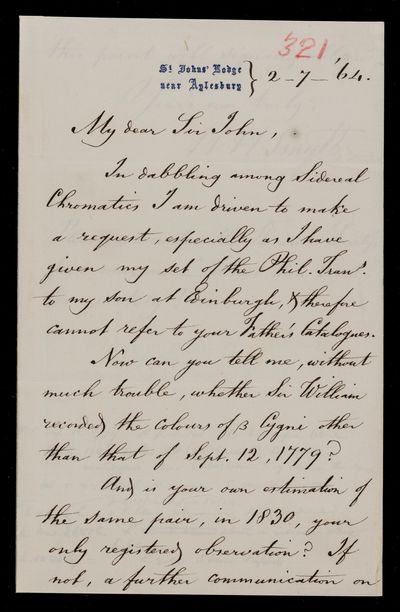 321
St Johns' Lodge
near Aylesbury } 2-7-'64.
My dear Sir John,
In dabbling among Sidereal
Chromatics I am driven to make
a request, especially as I have
given my set of the Phil. Trans.
to my son at Einburgh, & therefore
cannot refer to your Father's Catalogues.
Now can you tell me, without
much trouble, whether Sir William
recorded the colours of β Cygni other
than that of Sept. 12, 1779?
And is your own estimation of
the same pair, in 1830, your
only registered observation? If
not, a further communication on